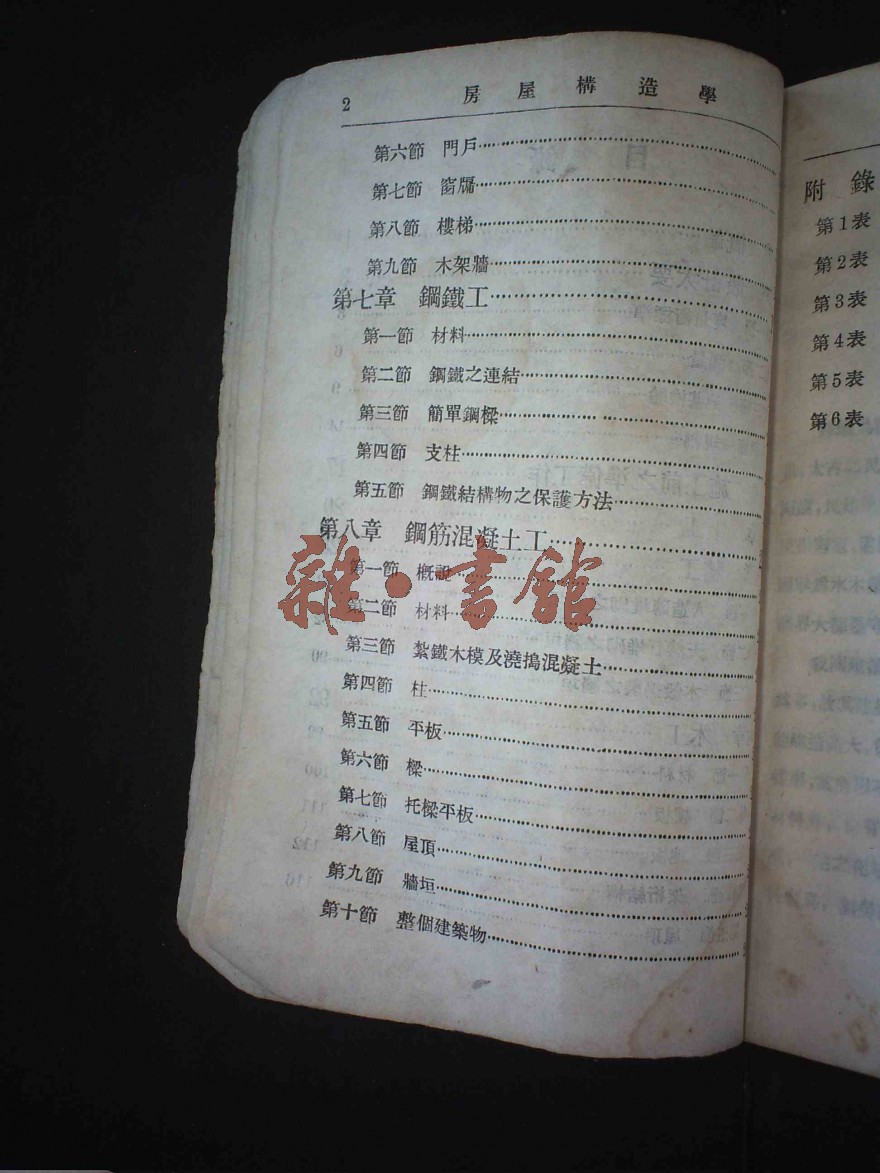 2 房屋構造學
第六節 門戶
第七節 窗牖
第八節 樓梯
第九節 木架牆
第七章 鋼鐵工
第一節 材料
第二節 鋼鐵之連結
第三節 簡單鋼樑
第四節 支柱
第五節 鋼鐵結構物之保護方法
第八章 鋼筋混凝土工
第一節 概說
第二節 材料
第三節 紮鐵木模及澆搗混凝土
第四節 柱
第五節 平板
第六節 樑
第七節 托樑平板
第八節 屋頂
第九節 牆垣
第十節 整個建築物
附錄
第1表
第2表
第3表
第4表
第5表
第6表
雜·書館